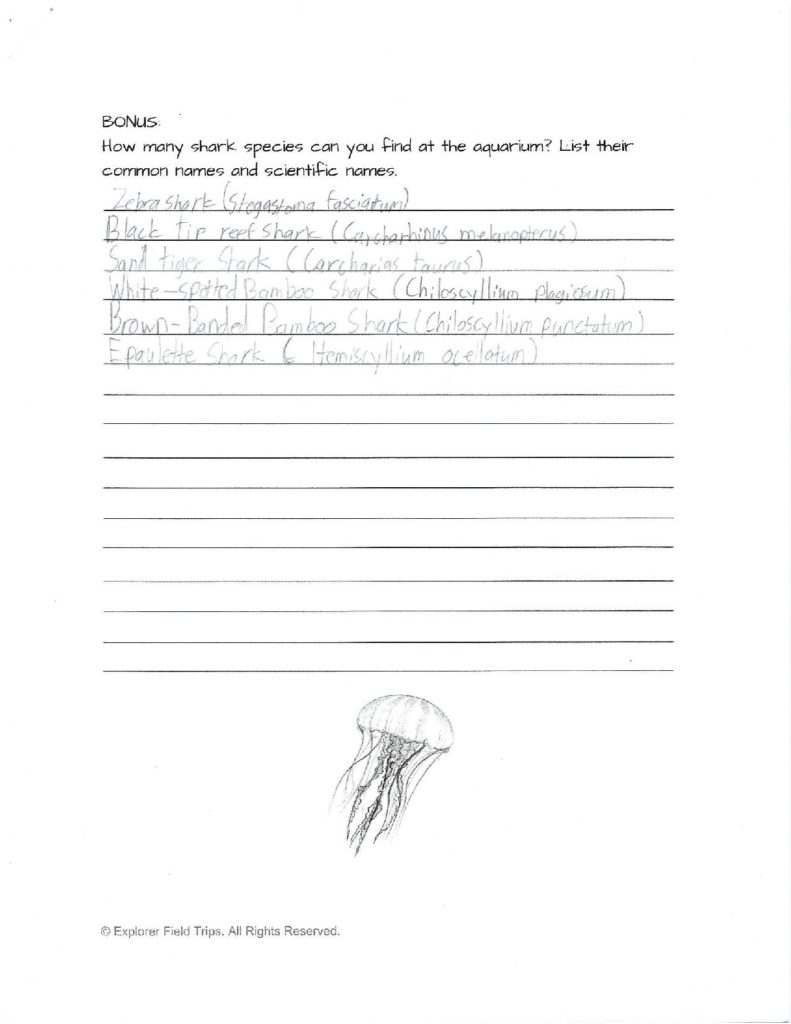 BONUS:
How many shark species can you find at the aquarium? List their
common names and scientific names.
Zebra shark (Stegastoma fasciatum)
Black tip reef shark (Carcharhinus melanopterus)
Sand tiger shark (Carcharias taurus)
White-spotted Bamboo shark (Chiloscyllium plagiosum)
Brown-Banded Bamboo Shark (Chiloscyllium punctatum)
Epaulette Shark (Hemiscyllium ocellatum)
© Explorer Field Trips. All Rights Reserved.